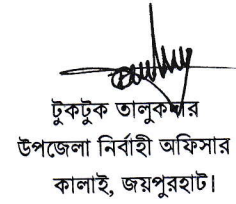 টুকটুক তালুকদার
উপজেলা নির্বাহী অফিসার
কালাই, জয়পুরহাট।